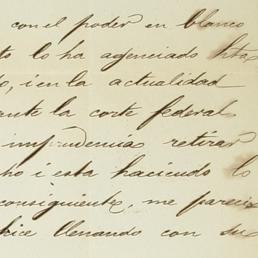 con el poder en blanco
to lo ha agenciado hta
o, i en la actualidad
ante la corte federal
imprudencia retirar
ho i esta haciendo lo
consiguiente, me pareció
hice llenando con su